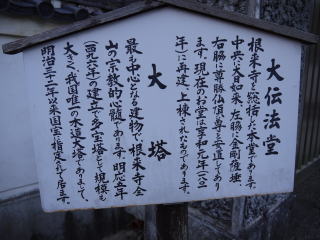 大伝法堂
根来寺を総括した本堂であります。
中央に大日如来、左脇に金剛薩埵
右脇に尊勝仏頂尊を安置してあり
ます。現在のお堂は享和元年(一八〇一
年)に再建、上棟されたものであります。
大塔
最も中心となる建物で、根来寺全
山の宗教的心髄であります。明応五年
(一四九六年)の建立で多宝塔として規模も
大きく、我国唯一の木造大塔でありまして、
明治三十二年以来国宝に指定されて居ます。